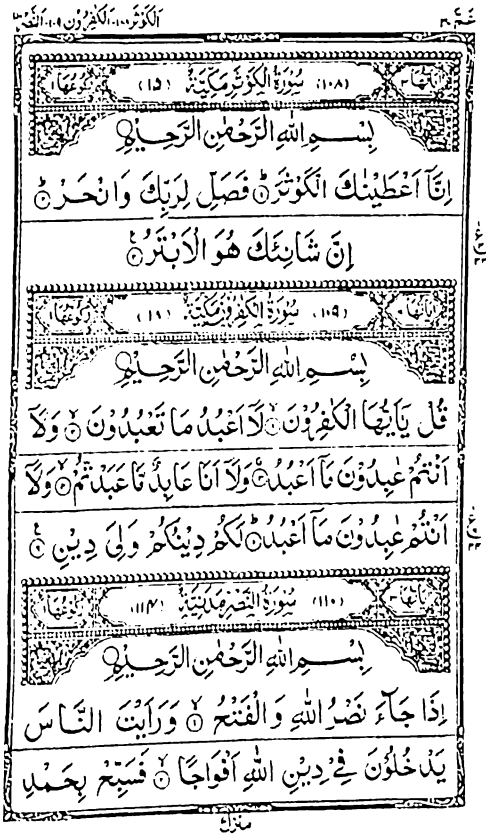 عَمَّ ٣٠ الْكَوْثَر ١٠٨، الْكٰفِرُوْن ١٠٩، النَّصْر ١١٠
اٰيَاتُهَا ٣ (١٠٨) سُوْرَةُ الْكَوْثَرِ مَكِّيَّةٌ (١٥) رُكُوْعُهَا ١
بِسْمِ اللّٰهِ الرَّحْمٰنِ الرَّحِيْمِ
اِنَّاۤ اَعْطَيْنٰكَ الْكَوْثَرَ ۝١ فَصَلِّ لِرَبِّكَ وَانْحَرْ ۝٢
اِنَّ شَانِئَكَ هُوَ الْاَبْتَرُ ۝٣
اٰيَاتُهَا ٦ (١٠٩) سُوْرَةُ الْكٰفِرُوْنَ مَكِّيَّةٌ (١٨) رُكُوْعُهَا ١
بِسْمِ اللّٰهِ الرَّحْمٰنِ الرَّحِيْمِ
قُلْ يٰۤاَيُّهَا الْكٰفِرُوْنَ ۝١ لَاۤ اَعْبُدُ مَا تَعْبُدُوْنَ ۝٢ وَلَاۤ
اَنْتُمْ عٰبِدُوْنَ مَاۤ اَعْبُدُ ۝٣ وَلَاۤ اَنَا عَابِدٌ مَّا عَبَدْتُّمْ ۝٤ وَلَاۤ
اَنْتُمْ عٰبِدُوْنَ مَاۤ اَعْبُدُ ۝٥ لَكُمْ دِيْنُكُمْ وَلِيَ دِيْنِ ۝٦
اٰيَاتُهَا ٣ (١١٠) سُوْرَةُ النَّصْرِ مَدَنِيَّةٌ (١١٤) رُكُوْعُهَا ١
بِسْمِ اللّٰهِ الرَّحْمٰنِ الرَّحِيْمِ
اِذَا جَآءَ نَصْرُ اللّٰهِ وَالْفَتْحُ ۝١ وَرَاَيْتَ النَّاسَ
يَدْخُلُوْنَ فِيْ دِيْنِ اللّٰهِ اَفْوَاجًا ۝٢ فَسَبِّحْ بِحَمْدِ